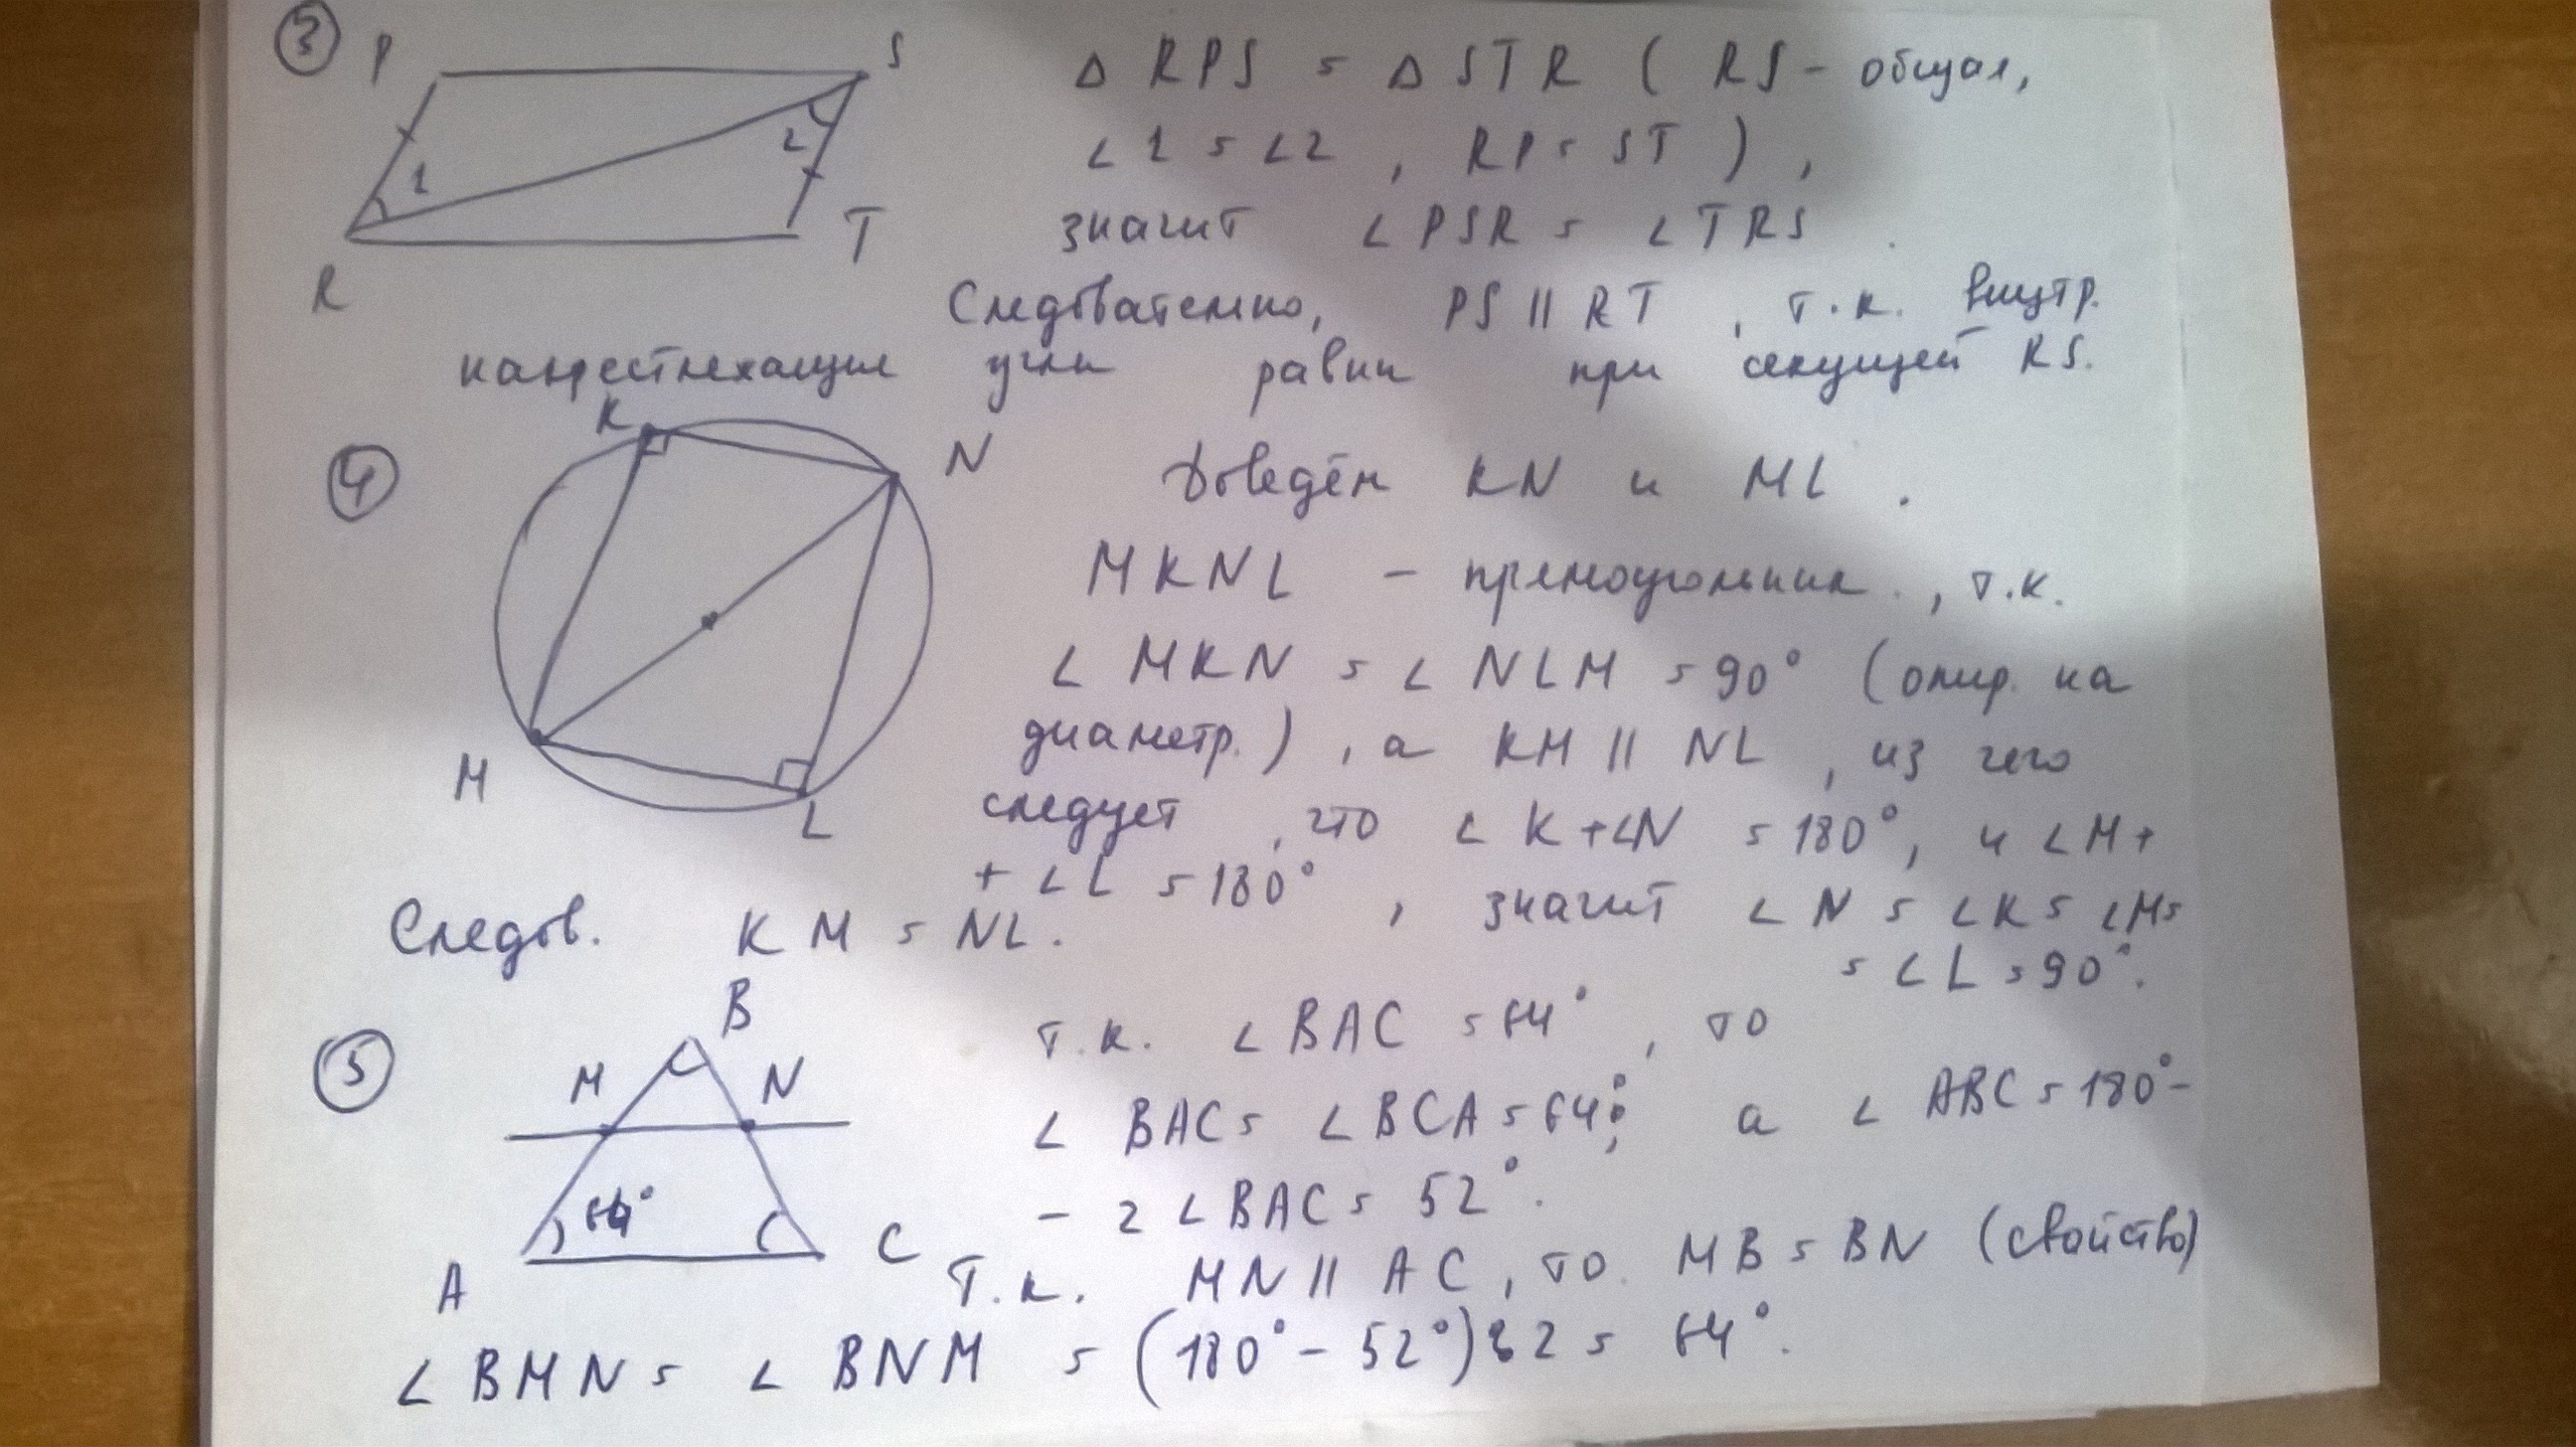 ③ P S
1 2
R T
Δ RPS = Δ STR ( RS - общая,
∠1 = ∠2 , RP = ST ) ,
значит ∠PSR = ∠TRS .
Следовательно, PS || RT , т.к. внутр.
накрестлежащие углы равны при секущей RS.
④ K N
M L
Доведём KN и ML .
MKNL - прямоугольник , т.к.
∠ MKN = ∠ NLM = 90° (опир. на
диаметр.) , а KM || NL , из чего
следует , что ∠K + ∠N = 180° , и ∠M +
+ ∠L = 180° , значит ∠N = ∠K = ∠M =
= ∠L = 90° .
Следов. KM = NL .
⑤ B
M N
64°
A C
Т.к. ∠ BAC = 64° , то
∠ BAC = ∠ BCA = 64° , а ∠ ABC = 180° -
- 2 ∠BAC = 52° .
Т.к. MN || AC , то MB = BN (свойство)
∠ BMN = ∠ BNM = (180° - 52°) : 2 = 64° .